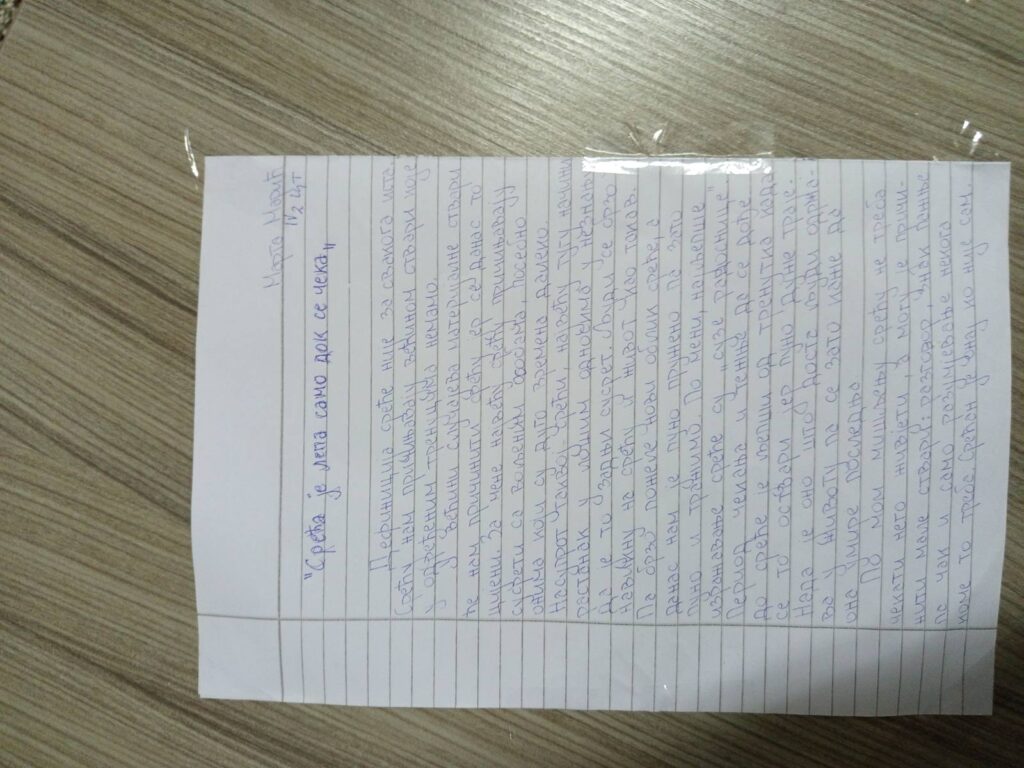 Марта Матић
IV2 цт
"Срећа је лепа само док се чека„
Дефиниција среће није за свакога иста.
Срећу нам причињавају већином ствари које
у одређеним тренуцима немамо.
У већини случајева материјалне ствари
ће нам причинити срећу јер се данас то
цијени. За мене највећу срећу причињавају
сусрети са вољеним особама, посебно
онима који су дуго времена далеко.
Насупрот таквој срећи, највећу тугу начини
растанак у лошим односима у незнању
да је то задњи сусрет. Људи се брзо
навикну на срећу и живот као такав.
Па брзо пожеле нови облик среће, а
данас нам је пуно пружено па зато
пуно и тражимо. По мени, најљепше
изражавање среће су "сузе радоснице".
Период чекања и тежње да се дође
до среће је љепши од тренутка када
се то оствари јер пуно дуже траје.
Нада је оно што доста људи одржа-
ва у животу па се зато каже да
она умире последња.
По мом мишљењу срећу не треба
чекати него живјети, а могу је причи-
нити мале ствари: разговор, знак пажње
па чак и само разумевање некога
коме то треба. Срећан је онај ко није сам.